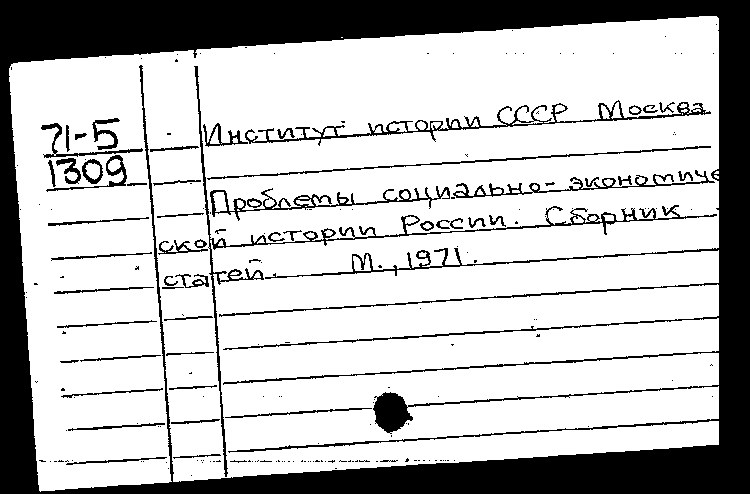 71-5
1309
Институт истории СССР Москва
Проблемы социально-экономиче
ской истории России. Сборник
статей. М., 1971.